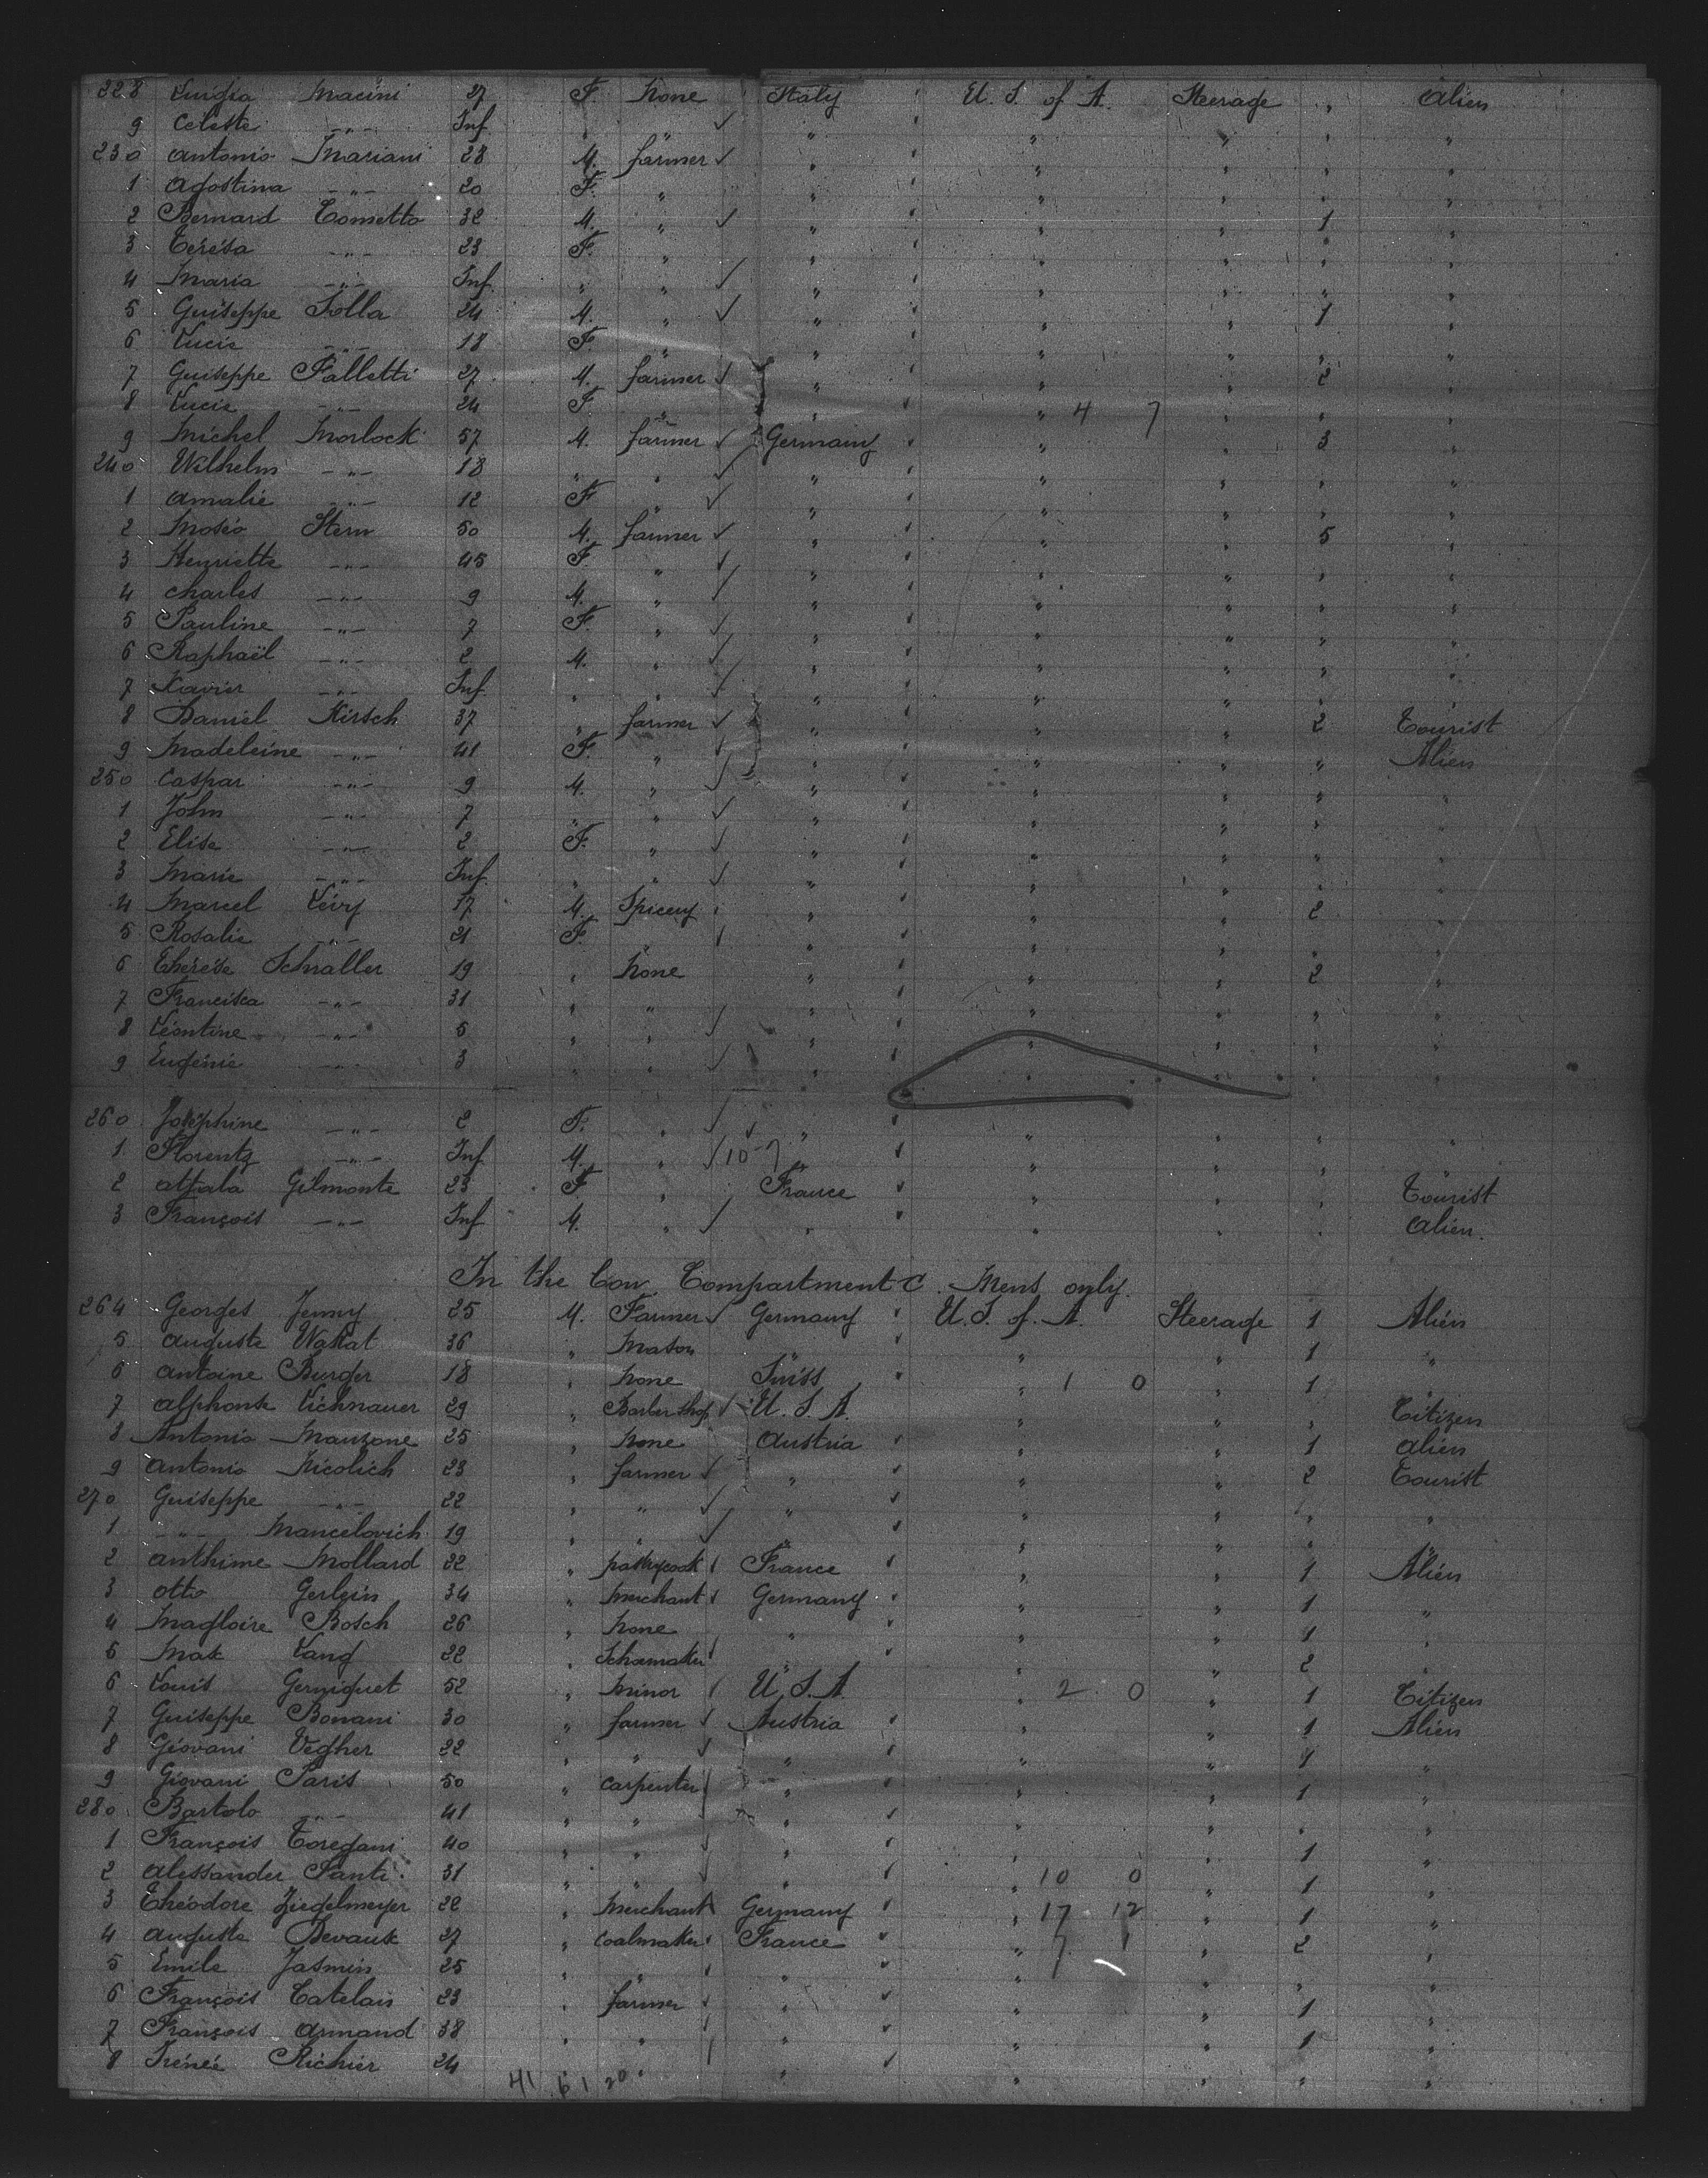 228 Luigia Macini 27 F. None Italy U. S. of A. Steerage " Alien
9 Celeste -"- Inf. " " " " " " "
230 Antonio Mariani 28 M. farmer " " " " "
1 Agostina -"- 20 F. " " " " " "
2 Bernard Cometto 32 M. " " " " 1 "
3 Térésa -"- 23 F. " " " " " "
4 Maria -"- Inf. " " " " " " "
5 Guiseppe Solla 24 M. " " " " 1 "
6 Lucie -"- 18 F. " " " " " "
7 Guiseppe Falletti 27 M. farmer " " " 2 "
8 Lucie -"- 24 F. " " " 4 7 " " "
9 Michel Morlock 57 M. farmer Germany " " 3 "
240 Wilhelm -"- 18 " " " " " " "
1 Amalie -"- 12 F " " " " "
2 Moses Stern 50 M. farmer " " " 5 "
3 Henriette -"- 45 F. " " " " " "
4 Charles -"- 9 M. " " " " " "
5 Pauline -"- 7 F. " " " " " "
6 Raphaël -"- 2 M. " " " " " "
7 Xavier -"- Inf. " " " " " " "
8 Daniel Hirsch 37 " farmer " " " 2 Tourist
9 Madeleine -"- 41 F. " " " " " Alien
250 Caspar -"- 9 M. " " " " " "
1 John -"- 7 " " " " " " "
2 Elise -"- 2 F. " " " " " "
3 Marie -"- Inf. " " " " " " "
4 Marcel Lévy 17 M. Spicery " " " 2 "
5 Rosalie -"- 21 F. " " " " "
6 Thérèse Schnaller 19 " None " " " 2 "
7 Francisca -"- 31 " " " " " " "
8 Léontine -"- 5 " " " " " " "
9 Eugénie -"- 3 " " " " " " "
260 Joséphine -"- 2 F. " " " " " "
1 Florentz -"- Inf. M. " 10-7 " " " "
2 Attala Gilmonte 23 F. " France " " " Tourist
3 François -"- Inf. M. " " " " " Alien.
In the bow Compartment C. Mens only.
264 Georges Jenny 25 M. Farmer Germany U. S. of A. Steerage 1 Alien
5 Auguste Wakat 36 " Mason " " " 1 "
6 Antoine Burger 18 " None Suiss " 1 0 " 1 "
7 Alphonse Lichnauer 29 " Barber shop U. S. A. " " " Citizen
8 Antonio Manzone 25 " None Austria " " 1 Alien
9 Antonio Nicolich 23 " farmer " " " 2 Tourist
270 Guiseppe -"- 22 " " " " " " "
1 -"- Mancelovich 19 " " " " " " "
2 Anthime Mollard 22 " pastrycook France " " 1 Alien
3 Otto Gerlein 34 " Merchant Germany " " 1 "
4 Magloire Bosch 26 " None " " " 1 "
5 Max Lang 22 " Schoemaker " " " 2 "
6 Louis Gerniquet 52 " Minor U. S. A. " 2 0 " 1 Citizen
7 Guiseppe Bonani 30 " farmer Austria " " 1 Alien
8 Giovani Vegher 22 " " " " " 1 "
9 Giovani Paris 50 " Carpenter " " " 1 "
280 Bartolo -"- 41 " " " " " " "
1 François Toregani 40 " " " " " 1 "
2 Alessander Santi 31 " " " 10 0 " 1 "
3 Théodore Ziegelmeyer 22 " Merchant Germany " 17 12 " 1 "
4 Auguste Devaux 27 " Coalmaker France " 7 1 " 2 "
5 Emile Jasmin 25 " " " " " " "
6 François Catelan 23 " farmer " " " 1 "
7 François Armand 38 " " " " " 1 "
8 Irénée Richier 24 " " " " " "
41 61 20